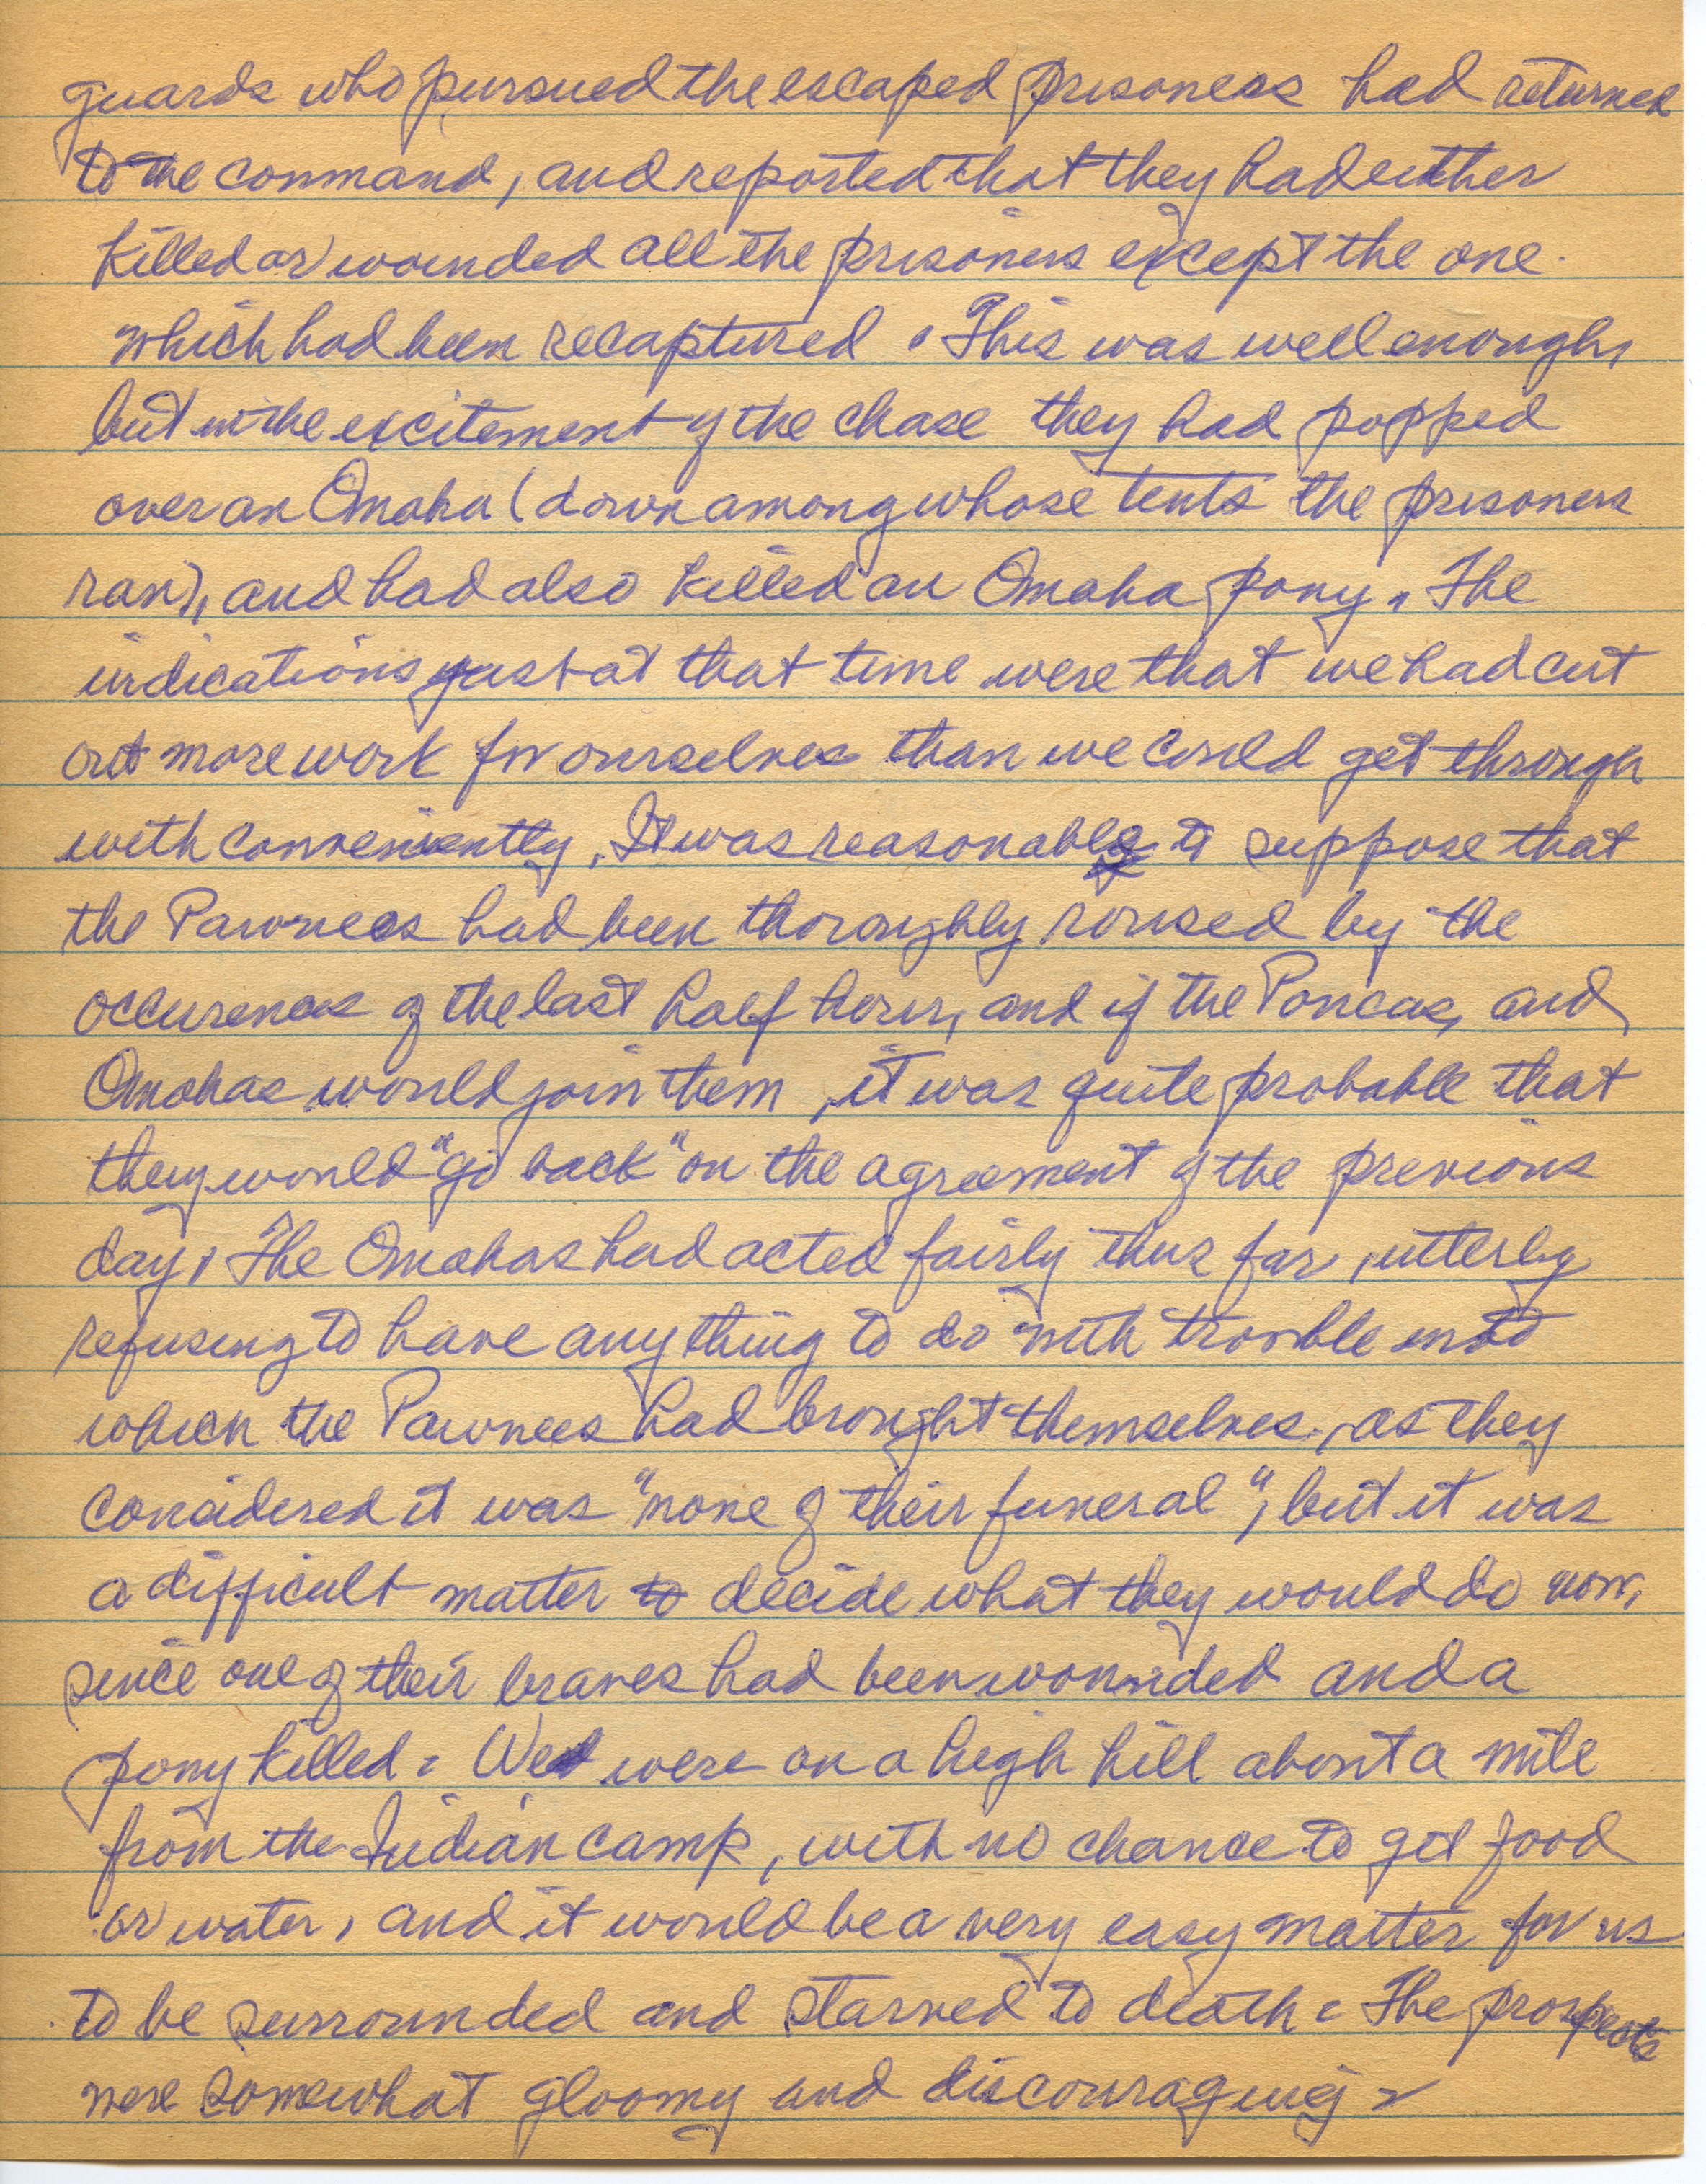 guards who pursued the escaped prisoners had returned
to the command, and reported that they had either
killed or wounded all the prisoners except the one
which had been recaptured. This was well enough,
but in the excitement of the chase they had popped
over an Omaha (down among whose tents the prisoners
ran), and had also killed an Omaha pony. The
indications just at that time were that we had cut
out more work for ourselves than we could get through
with conveniently. It was reasonable to suppose that
the Pawnees had been thoroughly roused by the
occurences of the last half hour, and if the Poncas, and
Omahas would join them, it was quite probable that
they would "go back" on the agreement of the previous
day. The Omahas had acted fairly thus far, utterly
refusing to have anything to do with trouble into
which the Pawnees had brought themselves, as they
considered it was "none of their funeral", but it was
a difficult matter to decide what they would do now,
since one of their braves had been wounded and a
pony killed. We were on a high hill about a mile
from the Indian camp, with no chance to get food
or water, and it would be a very easy matter for us
to be surrounded and starved to death. The prospects
were somewhat gloomy and discouraging.